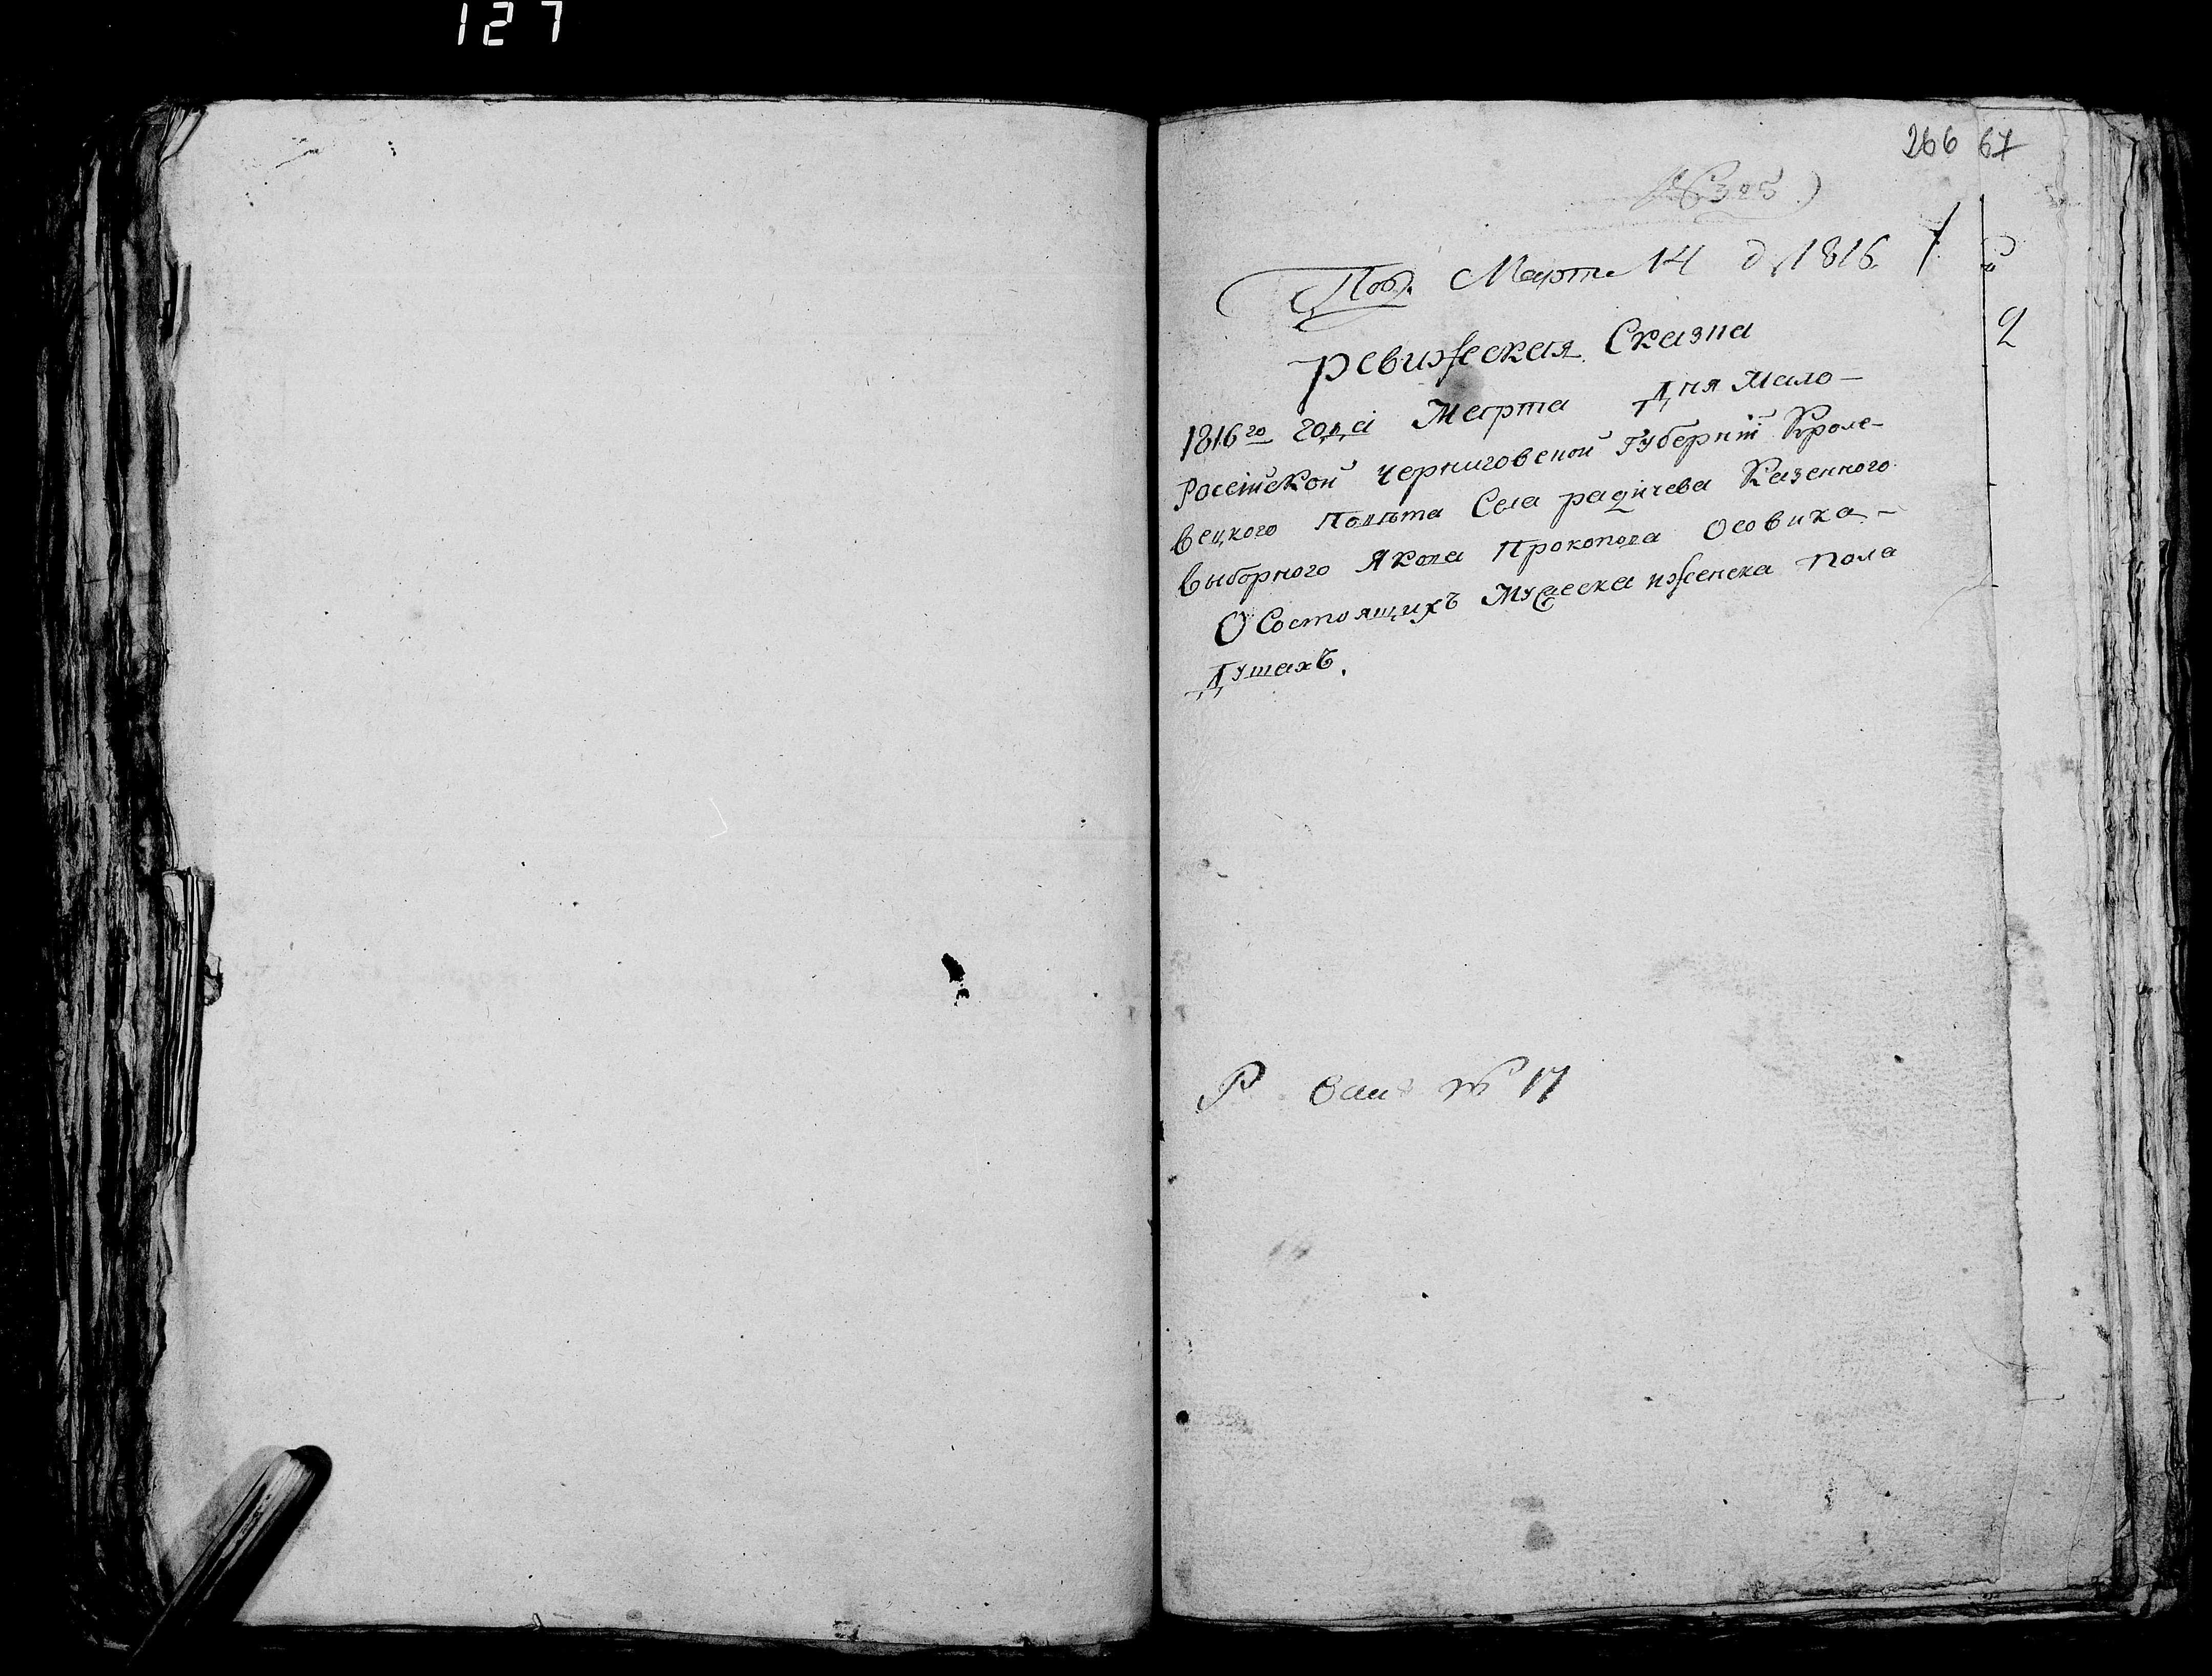 127
266 67
№ 325)
Под. Марта 14 д 1816
ревижская Сказка
1816го года Марта Дня Мало-
росейской Черниговской Губерніи Кроле-
вецкого Повѣта Села радичева Казенного
выборного Якова Прокопова Осовика-
О Состоящихъ Мужеска иженска пола
Душахъ.
2
Р № 17